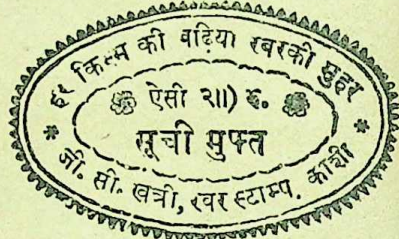 हर किस्म की बढ़िया रबरकी मुहर
ऐसी २॥) रु.
सूची मुफ्त
जी. सी. खत्री, रबर स्टाम्प. काशी